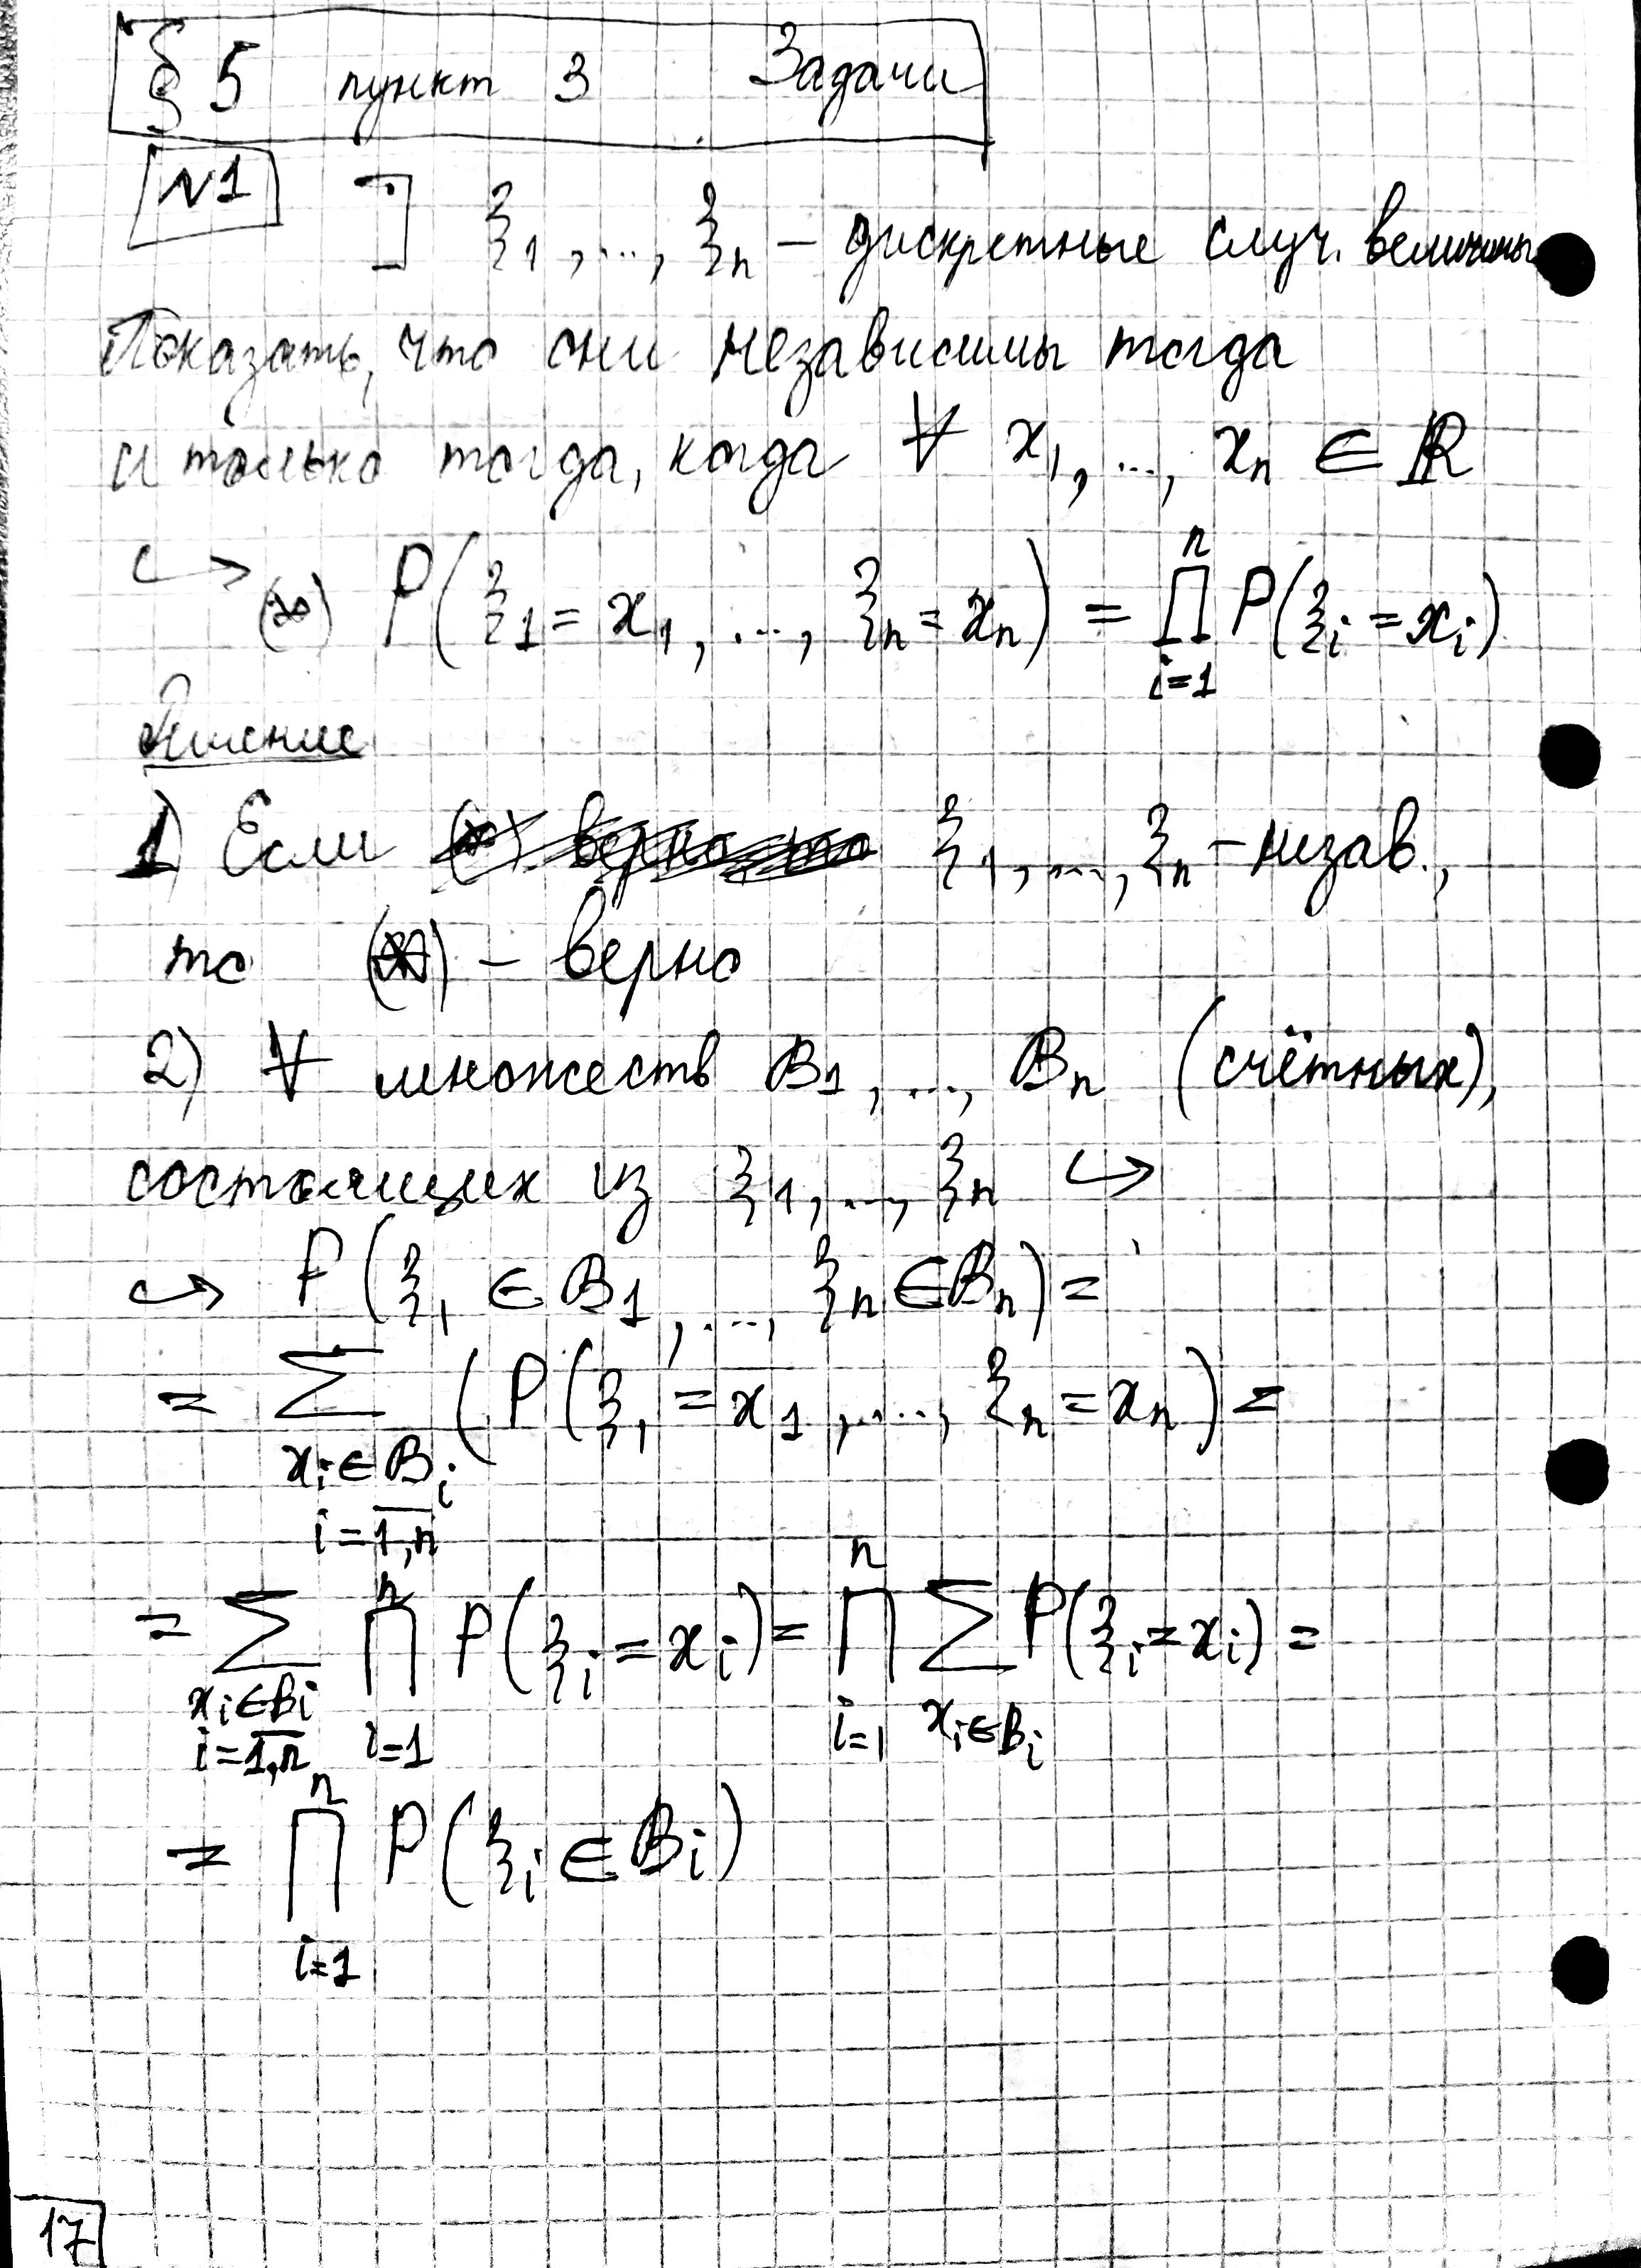 § 5 пункт 3 Задачи
N1 ] ξ₁, ..., ξₙ – дискретные случ. величины
Показать, что они независимы тогда
и только тогда, когда ∀ x₁, ..., xₙ ∈ ℝ
↪ (*) P(ξ₁ = x₁, ..., ξₙ = xₙ) = ∏ᵢ₌₁ⁿ P(ξᵢ = xᵢ)
Решение
1) Если ξ₁, ..., ξₙ – незав.,
то (*) – верно
2) ∀ множеств B₁, ..., Bₙ (счётных),
состоящих из ξ₁, ..., ξₙ ↪
↪ P(ξ₁ ∈ B₁, ..., ξₙ ∈ Bₙ) =
= ∑_{xᵢ ∈ Bᵢ, i = \overline{1,n}} (P(ξ₁ = x₁, ..., ξₙ = xₙ) =
= ∑_{xᵢ ∈ Bᵢ, i = \overline{1,n}} ∏ᵢ₌₁ⁿ P(ξᵢ = xᵢ) = ∏ᵢ₌₁ⁿ ∑_{xᵢ ∈ Bᵢ} P(ξᵢ = xᵢ) =
= ∏ᵢ₌₁ⁿ P(ξᵢ ∈ Bᵢ)
17